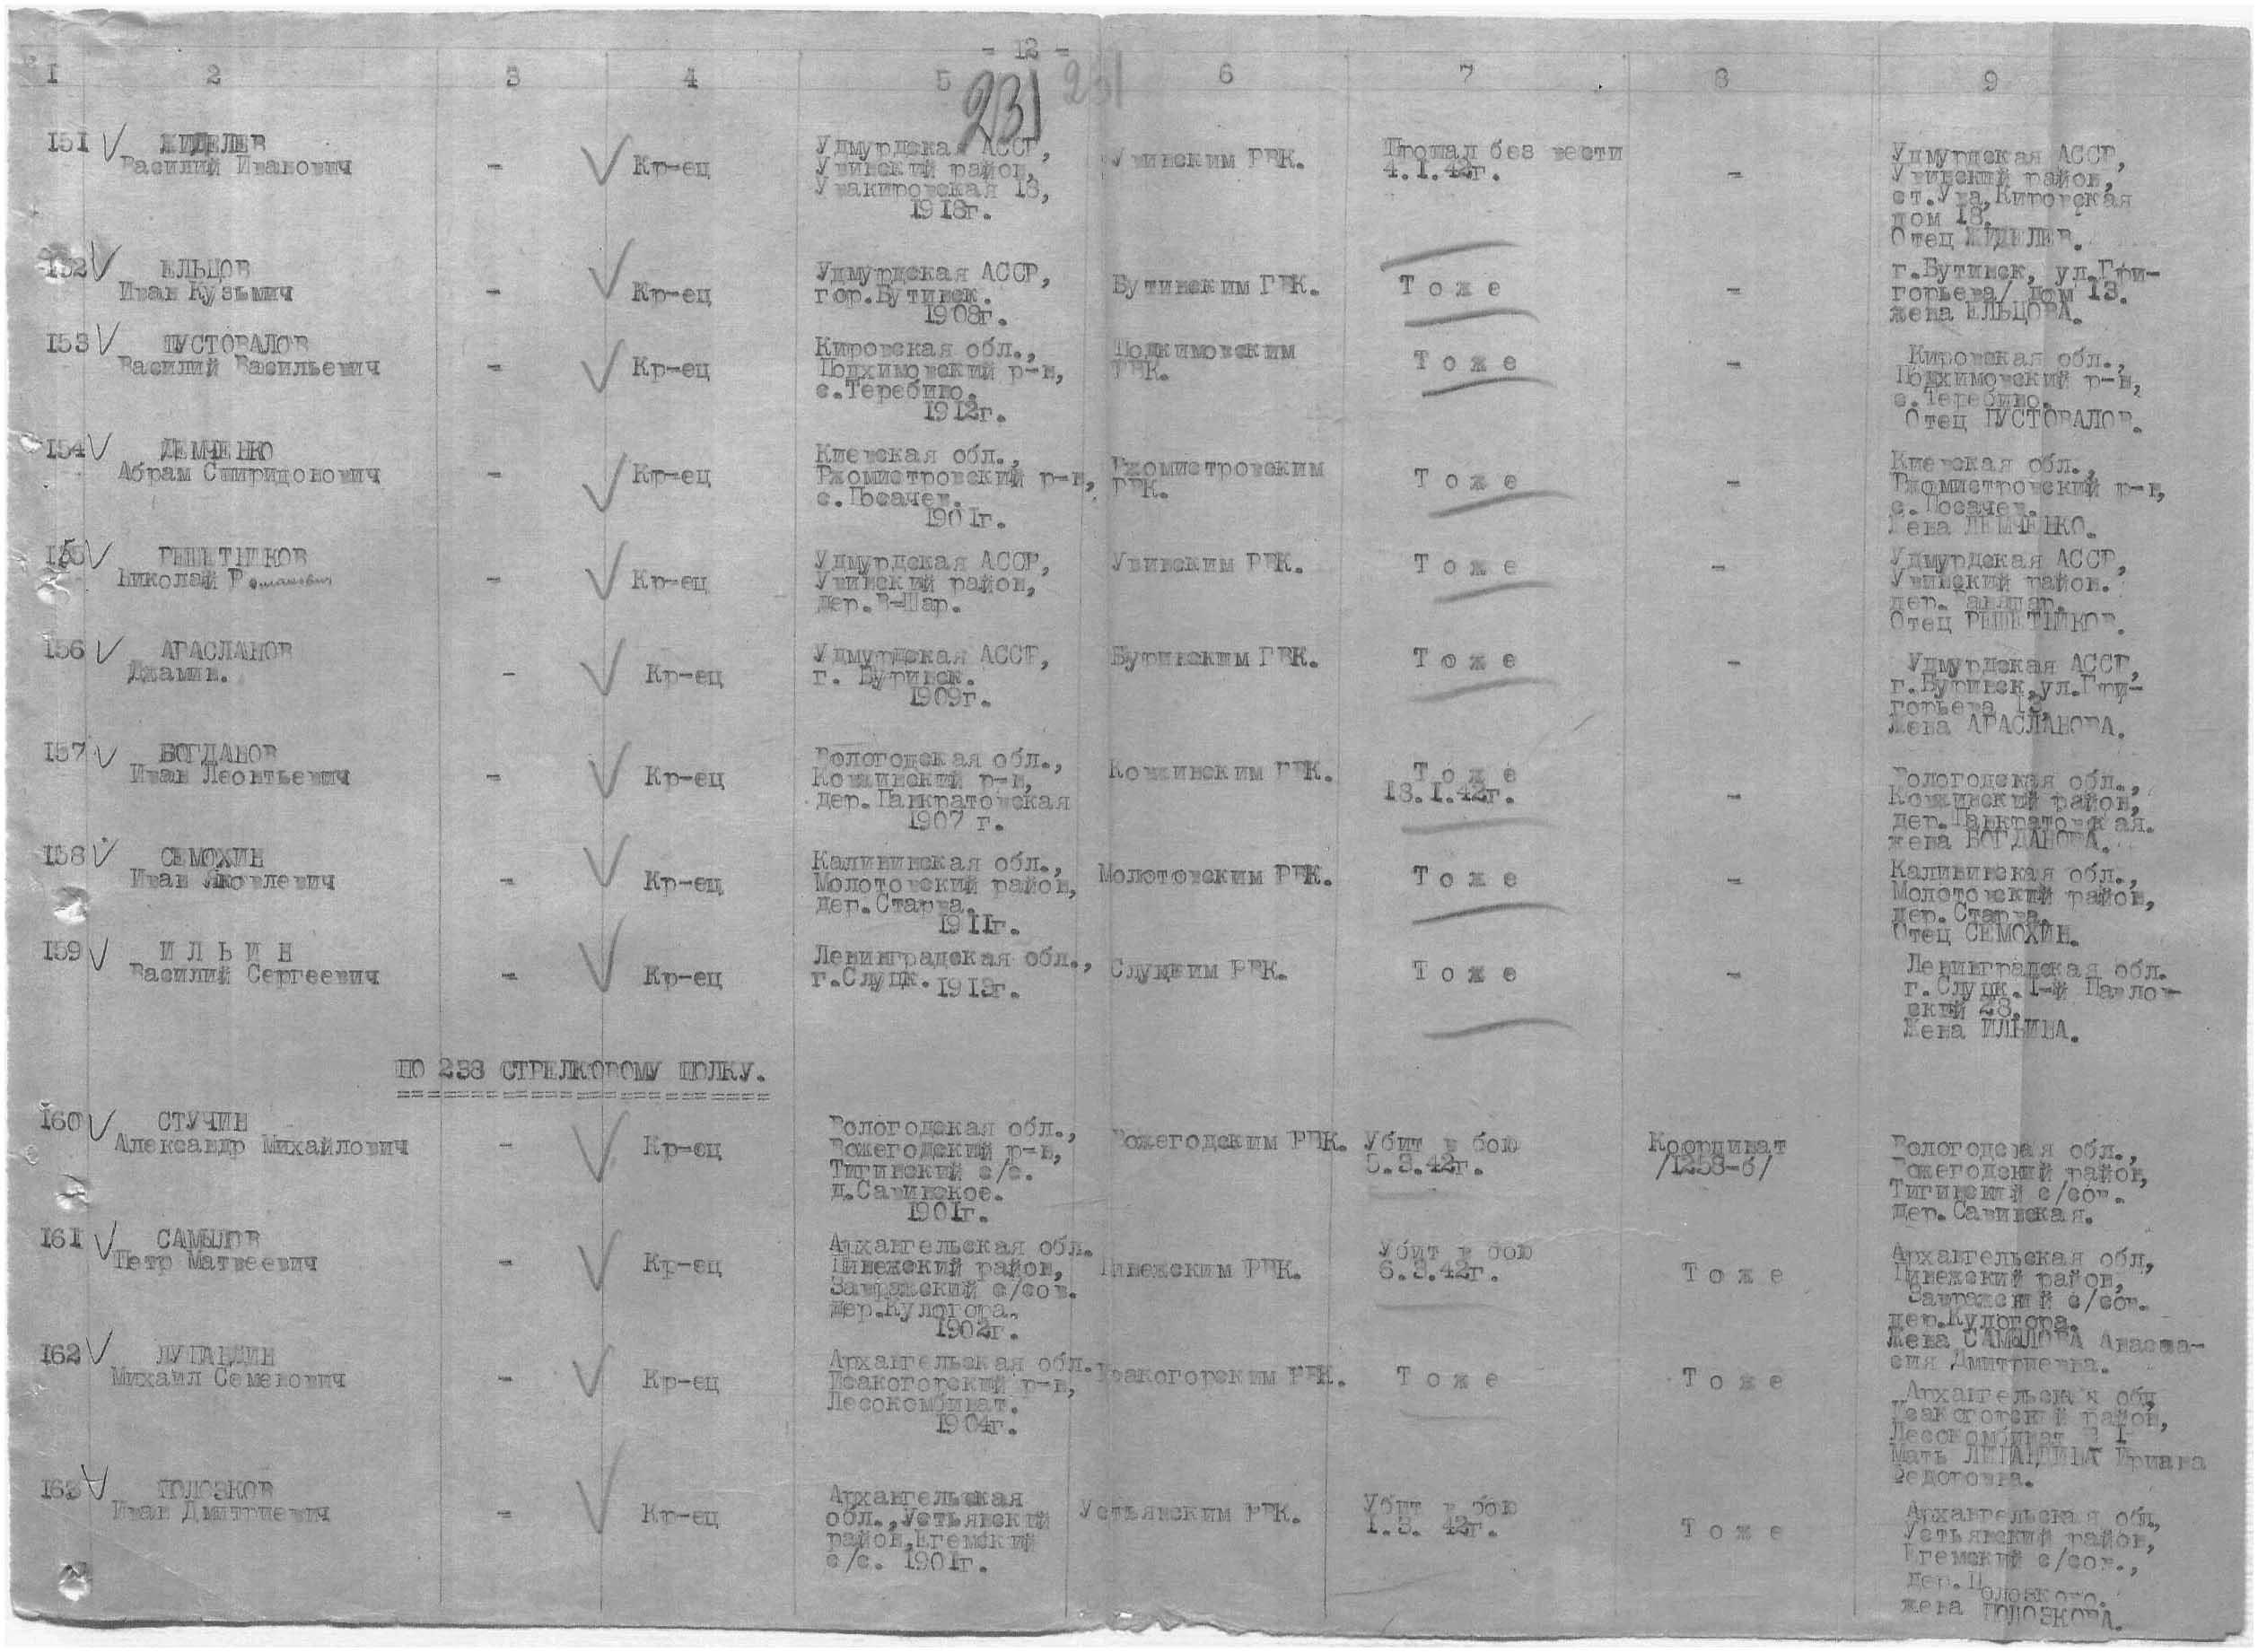 - 12 -
I 2 3 4 5 6 7 8 9
231 231
151 ЖИДЕЛЕВ
Василий Иванович - Кр-ец
Удмурдская АССР,
Увинский район,
Увакировская 18,
1918г.
Увинским РВК.
Пропал без вести
4.I.42г.
-
Удмурдская АССР,
Увинский район,
ст.Ува,Кировская
дом 18.
Отец ЖИДЕЛЕВ.
152 ЕЛЬЦОВ
Иван Кузьмич - Кр-ец
Удмурдская АССР,
гор.Бутинск.
1908г.
Бутинским ГВК.
Т о ж е
-
г.Бутинск, ул.Гри-
горьева/ дом 13.
жена ЕЛЬЦОВА.
153 ПУСТОВАЛОВ
Василий Васильевич - Кр-ец
Кировская обл.,
Подхимовский р-н,
с.Теребино.
1912г.
Подкимовским
РВК.
Т о ж е
-
Кировская обл.,
Подхимовский р-н,
с.Теребино.
Отец ПУСТОВАЛОВ.
154 ДЕМЧЕНКО
Абрам Спиридонович - Кр-ец
Киевская обл.,
Ржомистровский р-н,
с.Посачев.
1901г.
Ржомистровским
РВК.
Т о ж е
-
Киевская обл.,
Ржомистровский р-н,
с.Посачев.
Жена ДЕМЧЕНКО.
155 РЕШЕТНИКОВ
Николай Романович - Кр-ец
Удмурдская АССР,
Увинский район,
дер.В-Шар.
Увинским РВК.
Т о ж е
-
Удмурдская АССР,
Увинский район.
дер.
Отец РЕШЕТНИКОВ.
156 АРАСЛАНОВ
Джамин. - Кр-ец
Удмурдская АССР,
г. Буринск.
1909г.
Буринским ГВК.
Т о ж е
-
Удмурдская АССР,
г.Буринск,ул.Гри-
горьева 13.
Жена АРАСЛАНОВА.
157 БОГДАНОВ
Иван Леонтьевич - Кр-ец
Вологодская обл.,
Ковжинский р-н,
дер.Панкратовская
1907 г.
Ковжинским РВК.
Т о ж е
13.I.42г.
-
Вологодская обл.,
Ковжинский район,
дер.Панкратовская.
жена БОГДАНОВА.
158 СЕМОХИН
Иван Яковлевич - Кр-ец
Калининская обл.,
Молотовский район,
дер.Старва.
1911г.
Молотовским РВК.
Т о ж е
-
Калининская обл.,
Молотовский район,
дер.Старва.
Отец СЕМОХИН.
159 И Л Ь И Н
Василий Сергеевич - Кр-ец
Ленинградская обл.,
г.Слуцк. 1913г.
Слуцким РВК.
Т о ж е
-
Ленинградская обл.
г.Слуцк. I-й Павлов-
ский 28.
Жена ИЛЬИНА.
ПО 238 СТРЕЛКОВОМУ ПОЛКУ.
160 СТУЧИН
Александр Михайлович - Кр-ец
Вологодская обл.,
Вожегодский р-н,
Тигинский с/с.
д.Савинское.
1901г.
Вожегодским РВК.
Убит в бою
5.3.42г.
Координат
/1258-б/
Вологодская обл.,
Вожегодский район,
Тигинский с/сов.
дер.Савинская.
161 САМЫЛОВ
Петр Матвеевич - Кр-ец
Архангельская обл.
Пинежский район,
Завражский с/сов.
дер.Кулогора.
1902г.
Пинежским РВК.
Убит в бою
6.3.42г.
Т о ж е
Архангельская обл,
Пинежский район,
Завражский с/сов.
дер.Кулогора.
Жена САМЫЛОВА Анаста-
сия Дмитриевна.
162 ЛУПАНДИН
Михаил Семенович - Кр-ец
Архангельская обл.
Исакогорский р-н,
Лесокомбинат.
1904г.
Исакогорским РВК.
Т о ж е
Т о ж е
Архангельская обл,
Исакогорский район,
Лесокомбинат
Мать ЛУПАНДИНА Ириана
Федотовна.
163 ПОЛОЗКОВ
Иван Дмитриевич - Кр-ец
Архангельская
обл.,Устьянский
район,Егемский
с/с. 1901г.
Устьянским РВК.
Убит в бою
1.3. 42г.
Т о ж е
Архангельская обл,
Устьянский район,
Егемский с/сов.,
дер.Полозково.
жена ПОЛОЗКОВА.